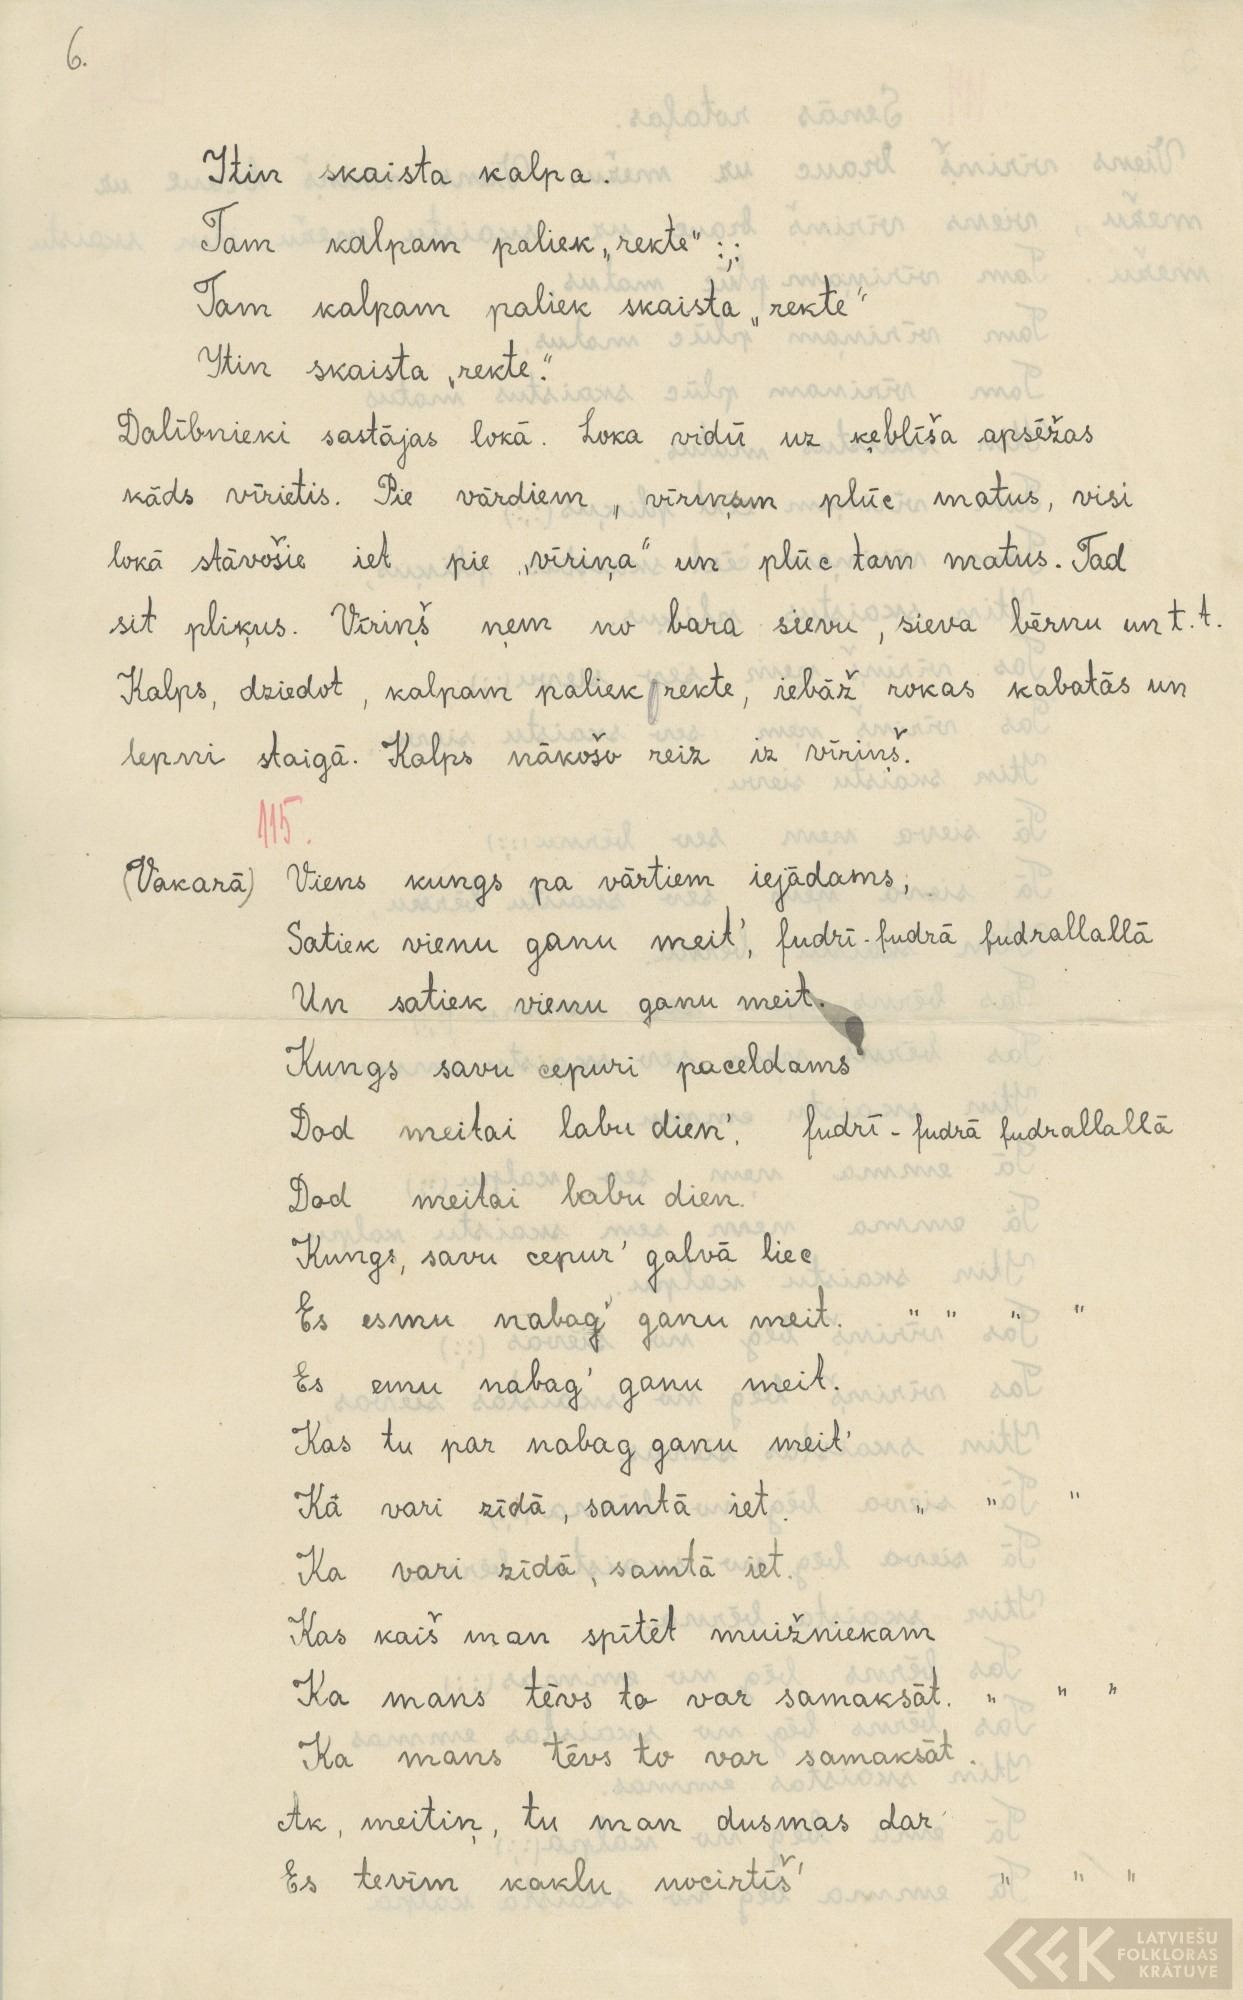 6.
Itin skaista kalpa.
Tam kalpam paliek „rekte" :,:
Tam kalpam paliek skaista „rekte"
Itin skaista „rekte."
Dalībnieki sastājas lokā. Loka vidū uz ķeblīša apsēžas
kāds vīrietis. Pie vārdiem „ vīriņam plūc matus, visi
lokā stāvošie iet pie „vīriņa" un plūc tam matus. Tad
sit pliķus. Vīriņš ņem no bara sievu, sieva bērnu un t.t.
Kalps, dziedot, kalpam paliek rekte, iebāž rokas kabatās un
lepni staigā. Kalps nākošo reiz iz vīriņš.
115.
(Vakarā) Viens kungs pa vārtiem iejādams,
Satiek vienu ganu meit', fudrī-fudrā fudrallallā
Un satiek vienu ganu meit.
Kungs savu cepuri paceldams
Dod meitai labu dien', fudrī-fudrā fudrallallā
Dod meitai labu dien.
Kungs, savu cepur' galvā liec
Es esmu nabag' ganu meit. " " " "
Es emu nabag' ganu meit.
Kas tu par nabag ganu meit'
Kā vari zīdā, samtā iet. " " "
Ka vari zīdā, samtā iet.
Kas kaiš man spītēt muižniekam
Ka mans tēvs to var samaksāt. " " "
Ka mans tēvs to var samaksāt.
Ak, meitiņ, tu man dusmas dar
Es tevīm kaklu nocirtīš' " " "
LATVIEŠU
FOLKLORAS
KRĀTUVE